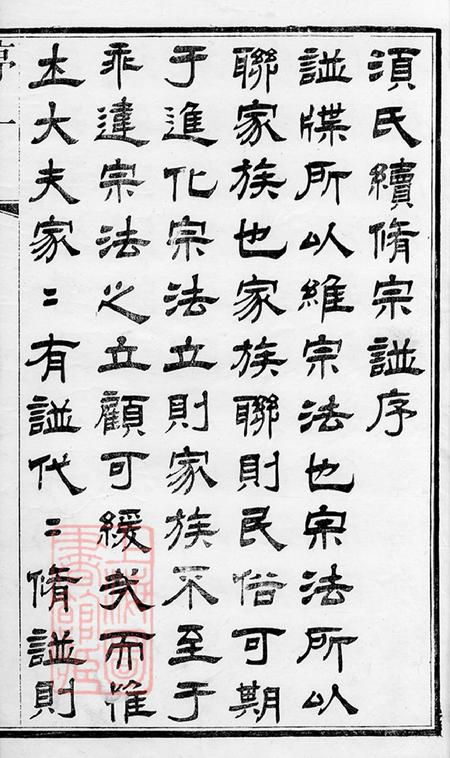 項氏續脩宗譜序
譜牒所以維宗法也宗法所以
聯家族也家族聯則民俗可期
于進化宗法立則家族不至于
乖違宗法之立顧可緩哉而惟
士大夫家〻有譜代〻脩譜則
序 一
上海圖書館藏